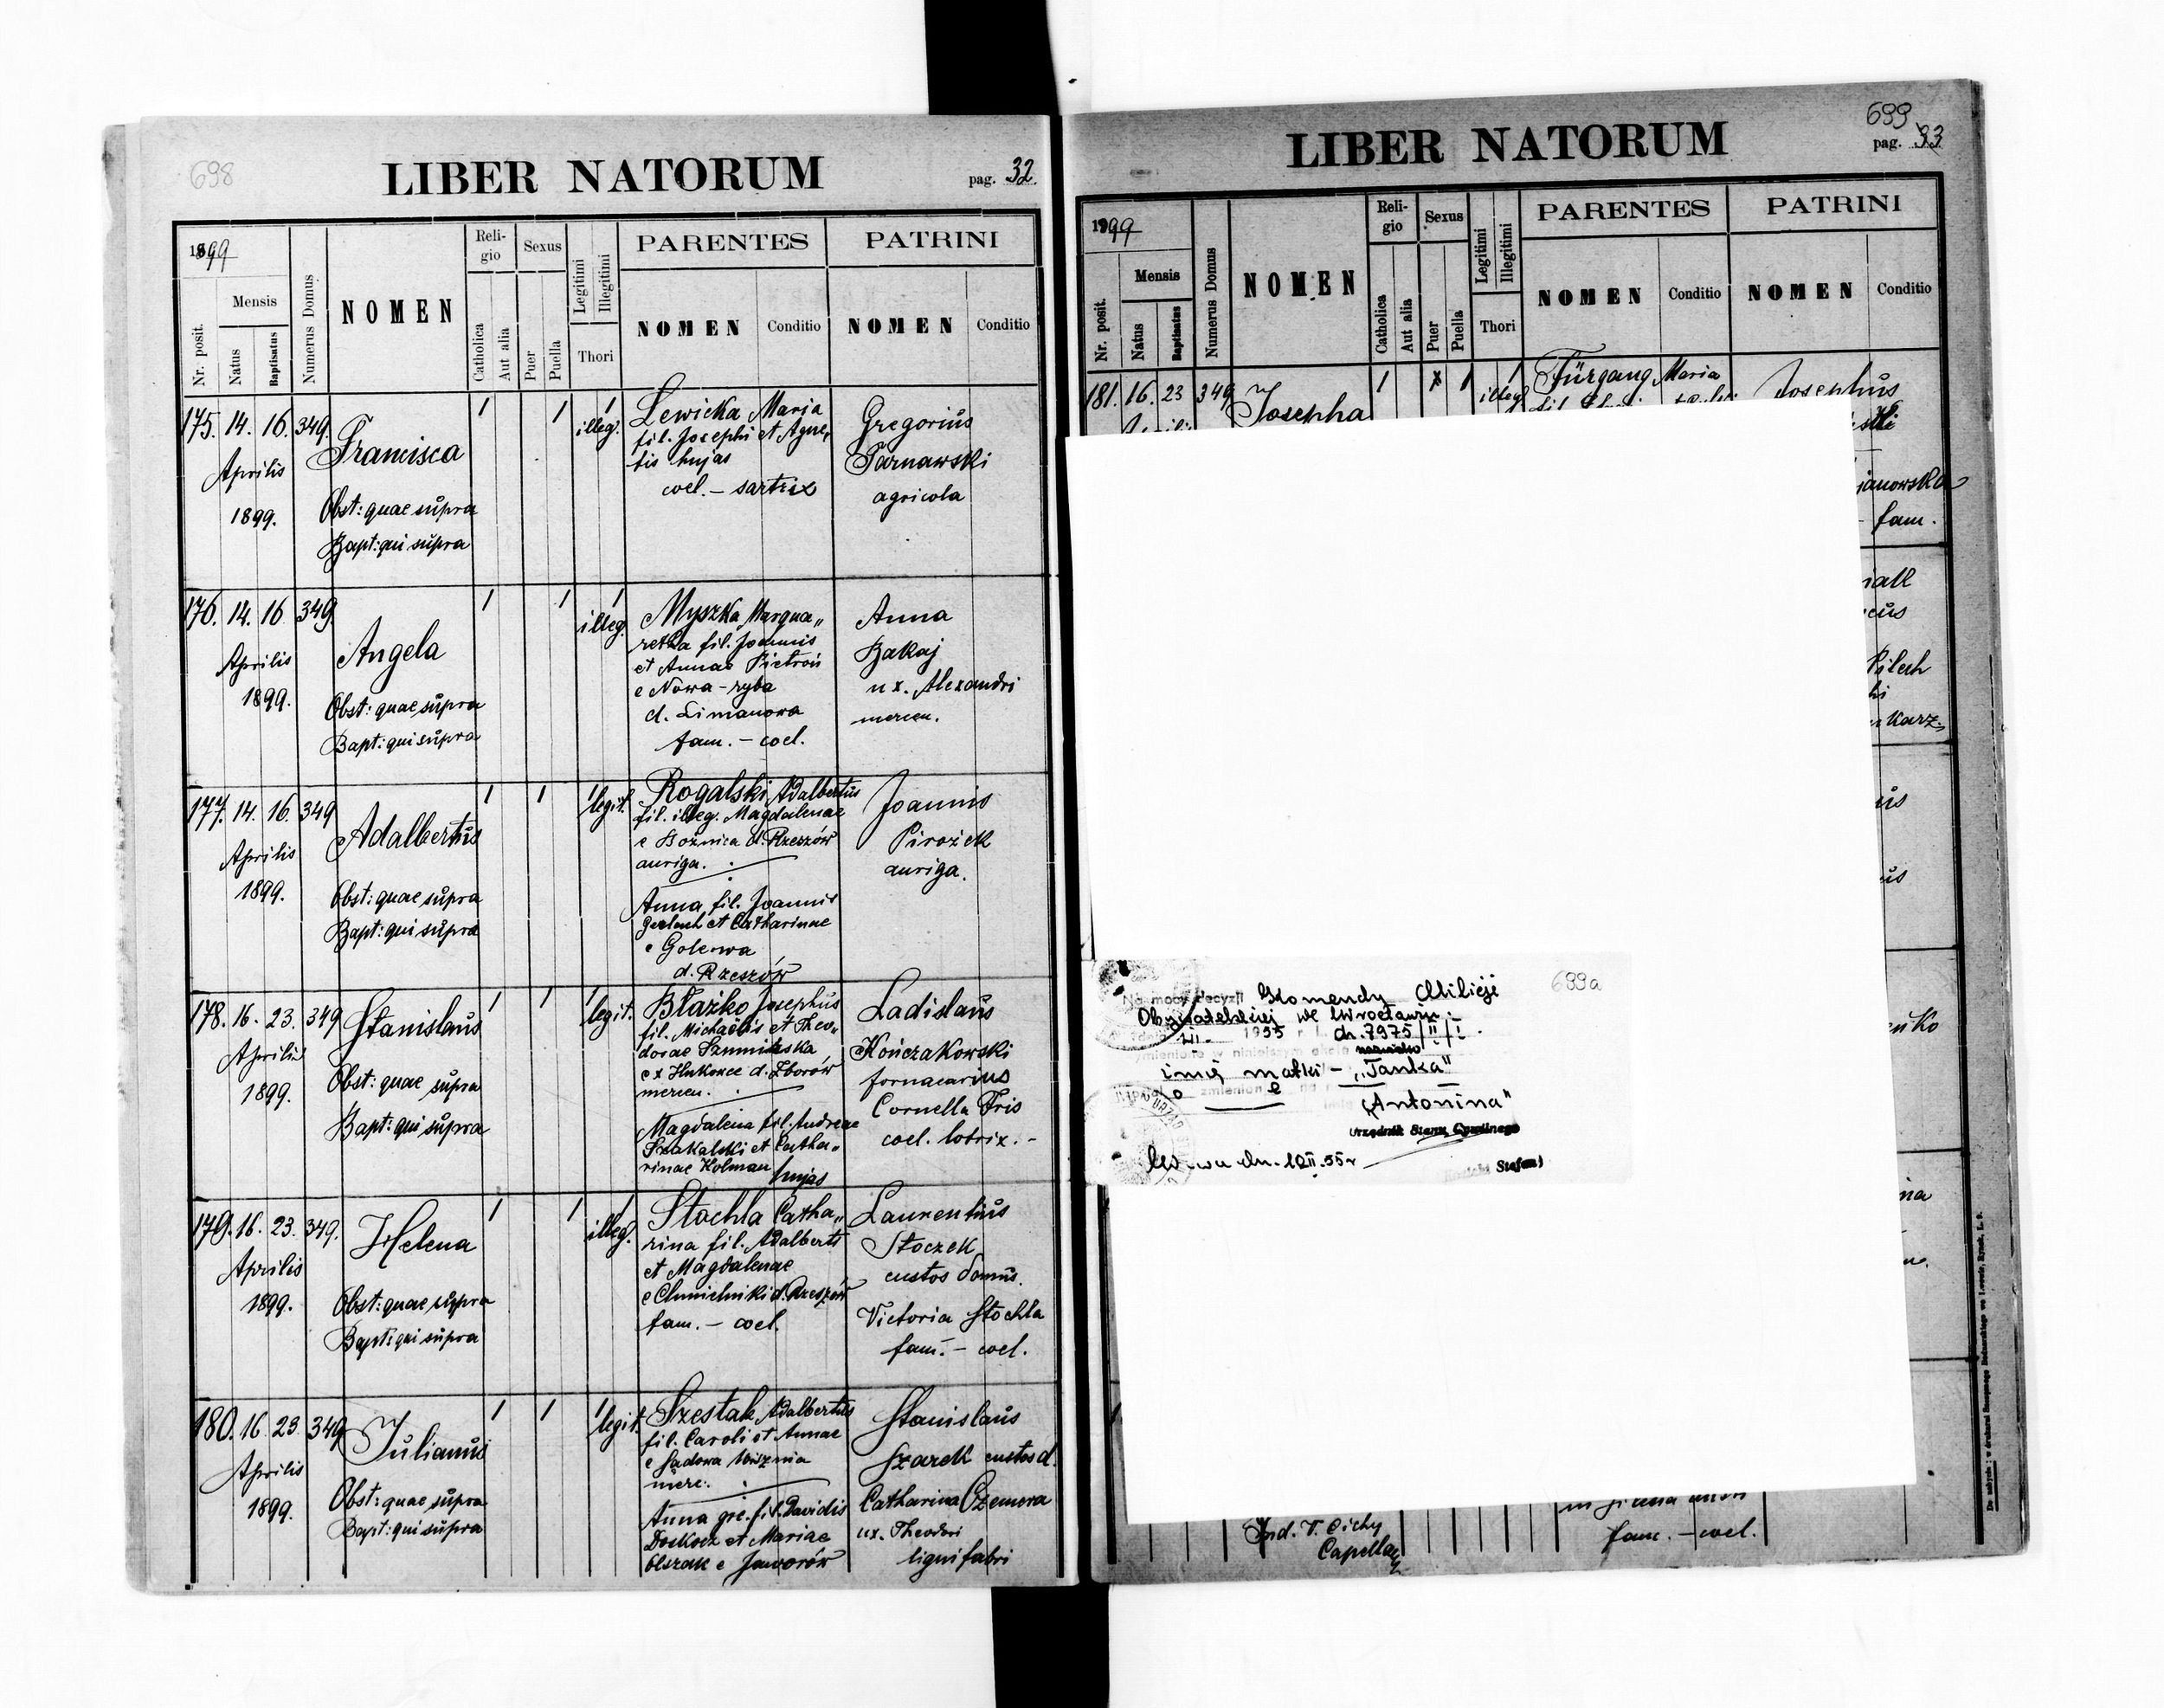 698
LIBER NATORUM
pag. 32.
1899
Nr. posit.
Mensis
Natus
Baptisatus
Numerus Domus
NOMEN
Reli-
gio
Catholica
Aut alia
Sexus
Puer
Puella
Legitimi
Illegitimi
Thori
PARENTES
NOMEN
Conditio
PATRINI
NOMEN
Conditio
175. 14. 16. 349.
Aprilis
1899.
Francisca
Obst: quae supra
Bapt: qui supra
1 1 1
illeg.
Lewicka Maria
fil. Josephi et Agne„
tis hujas
coel. – sartrix
Gregorius
Tarnawski
agricola
176. 14. 16 349.
Aprilis
1899.
Angela
Obst: quae supra
Bapt: qui supra
1 1 1
illeg.
Myszka Margua„
retha fil. Joannis
et Annae Pietroń
e Nowa-ryba
d. Limanowa
fam. – coel.
Anna
Bakaj
ux. Alexandri
mercen.
177. 14. 16. 349
Aprilis
1899.
Adalbertus
Obst: quae supra
Bapt: qui supra
1 1 1
legit.
Rogalski Adalbertus
fil. illeg. Magdalenae
d. Rzeszów
auriga.
Anna fil. Joannis
et Catharinae
e
d. Rzeszów
Joannis
Pirożek
auriga.
178. 16. 23. 349
Aprilis
1899.
Stanislaus
Obst: quae supra
Bapt: qui supra
1 1 1
legit.
Błażko Josephus
fil. Michaëlis et Theo„
dorae
d. Zborów
mercen.
Magdalena fil. Andreae
et Catha„
rinae Holman hujas
Ladislaus
Kończakowski
fornacarius
Cornella Fris
coel. lotrix. –
179. 16. 23. 349.
Aprilis
1899.
Helena
Obst: quae supra
Bapt: qui supra
1 1 1
illeg.
Stochla Catha„
rina fil. Adalberti
et Magdalenae
e Chmielniki d. Rzeszów
fam. – coel.
Laurentius
Stoczek
custos domus.
Victoria Stochla
fam. – coel.
180. 16. 23 349
Aprilis
1899.
Julianus
Obst: quae supra
Bapt: qui supra
1 1 1
legit.
Szestak Adalbertus
fil. Caroli et Annae
e Sadowa Wisznia
merc.
Anna gr. fil. Davidis
et Mariae
e Jaworów
Stanislaus
Szarek custos d.
Catharina Czemera
ux. Theodori
lignifabri
699
LIBER NATORUM
pag. 33
1899
Nr. posit.
Mensis
Natus
Baptisatus
Numerus Domus
NOMEN
Reli-
gio
Catholica
Aut alia
Sexus
Puer
Puella
Legitimi
Illegitimi
Thori
PARENTES
NOMEN
Conditio
PATRINI
NOMEN
Conditio
181. 16. 23 349
Josepha
1 x 1 1
illeg.
Fürgang Maria
Josephus
janowska
– fam.
Pilech
699a
Na mocy decyzji Komendy Milicji
Obywatelskiej we Wrocławiu
1955 r.
nazwisko
imię matki – „Tanka"
zmieniono na
„Antonina"
Urzędnik Stanu Cywilnego
Stefan)
Ind. T. Cichy
Capellan
fam. – coel.